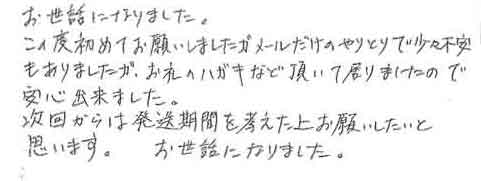 お世話になりました。
この度初めてお願いしましたがメールだけのやりとりで少々不安
もありましたが、お礼のハガキなど頂いて居りましたので
安心出来ました。
次回からは発送期間を考えた上お願いしたいと
思います。 お世話になりました。